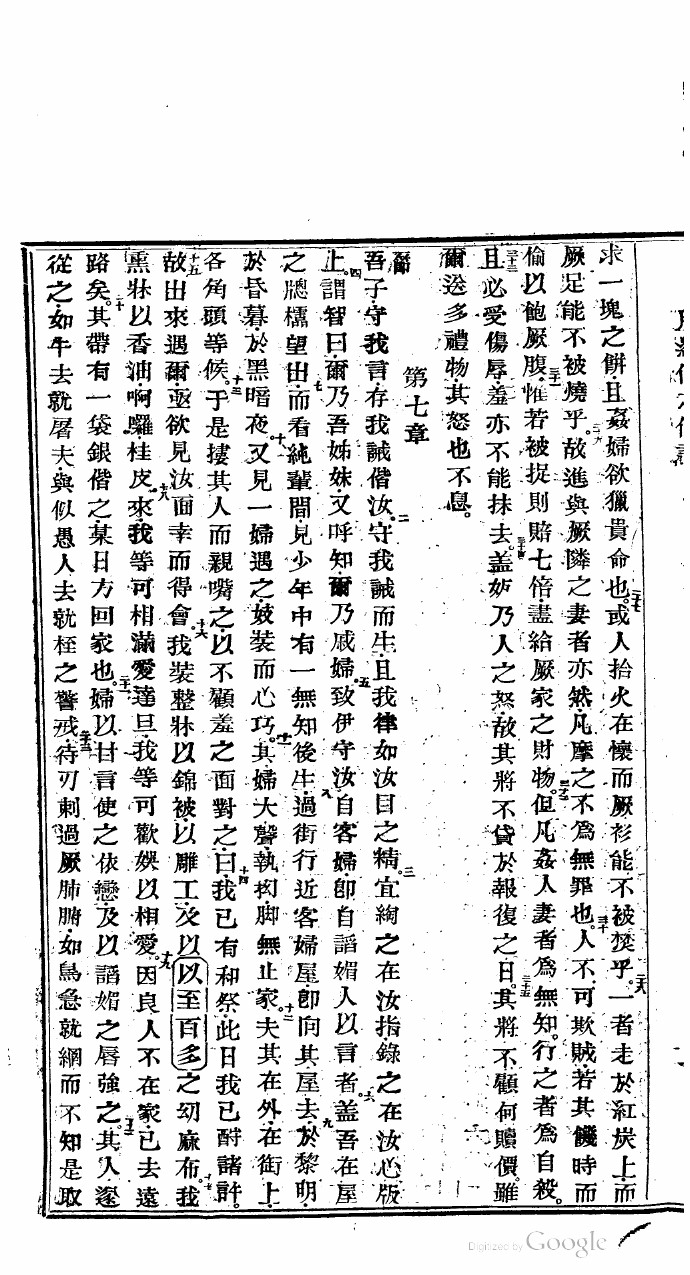 求一塊之餅且姦婦欲獵貴命也二十七或人拾火在懷而厥衫能不被焚乎二十八一者走於紅炭上而
厥足能不被燒乎二十九故進與厥隣之妻者亦然凡摩之不爲無罪也三十人不可欺賊若其饑時而
偷以飽厥腹三十一惟若被捉則賠七倍盡給厥家之財物三十二但凡姦人妻者爲無知行之者爲自殺
三十三且必受傷辱羞亦不能抹去三十四蓋妒乃人之怒故其將不貸於報復之日三十五其將不顧何贖價雖
爾送多禮物其怒也不息
第七章
節吾子守我言存我誡偕汝二守我誡而生且我律如汝目之精三宜綯之在汝指錄之在汝心版
上四謂智曰爾乃吾姊妹又呼知爾乃戚婦五致伊守汝自客婦卽自謟媚人以言者六蓋吾在屋
之牕櫺望出七而看純輩間見少年中有一無知後生八過街行近客婦屋卽向其屋去九於黎明
於昏暮於黑暗夜十又見一婦遇之妓裝而心巧十一其婦大聲執拗脚無止家十二夫其在外在街上
各角頭等候十三于是摟其人而親嘴之以不顧羞之面對之曰十四我已有和祭此日我已酧諸許
十五故出來遇爾亟欲見汝面幸而得會十六我裝整牀以錦被以雕工及以以至百多之幼麻布十七我
熏牀以香油啊囉桂皮十八來我等可相滿愛達旦我等可歡娛以相愛十九因良人不在家已去遠
路矣二十其帶有一袋銀偕之某日方回家也二十一婦以甘言使之依戀及以謟媚之唇強之二十二其人遂
從之如牛去就屠夫與似愚人去就桎之警戒二十三待刃刺過厥肺腑如鳥急就網而不知是取
Digitized by Google